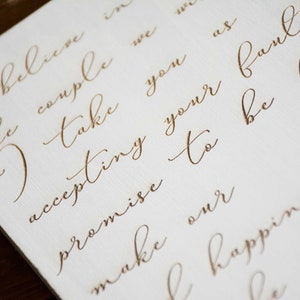 believe in
couple we wi
) take you as
accepting your fault
promise to be
make our
happin
be